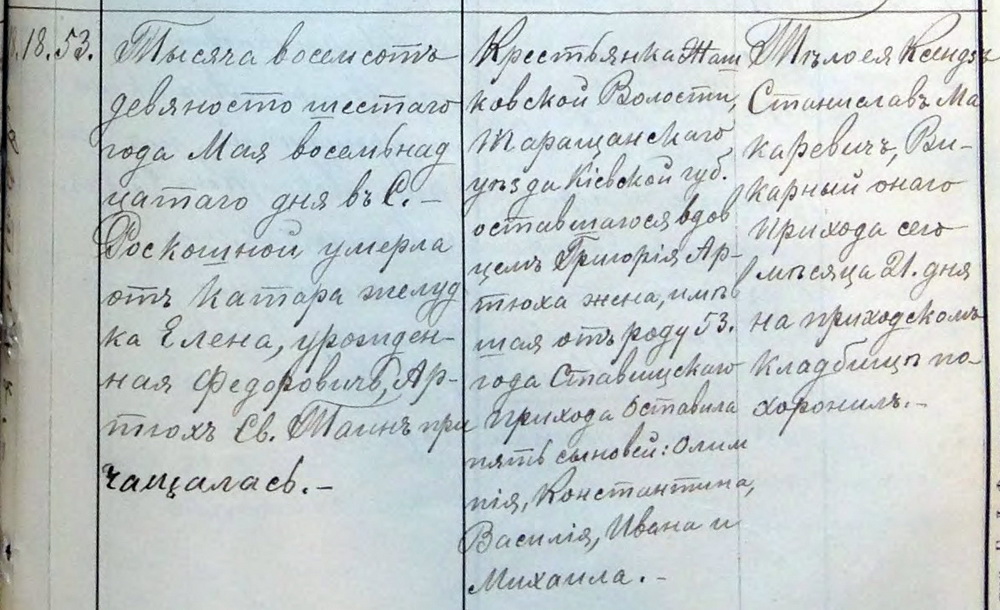 18. 53.
Тысяча восемсотъ
девяносто шестаго
года Мая восембнад
цатаго дня въ С. –
Роскошной умерла
отъ катара желуд
ка Елена, урожден-
ная Федоровичъ, Ар-
тюхъ Св. Таинъ при
чащалась. –
Крестьянка Жаш
ковской Волости,
Таращанскаго
уѣзда Кіевской губ.
оставшагося вдов
цемъ Григорія Ар-
тюха жена, имѣв
шая отъ роду 53.
года Ставищскаго
прихода Оставила
пять сыновей: Олим
пія, Константина,
Василія, Ивана и
Михаила. –
Тѣло ея Ксендзъ
Станиславъ Ма
каревичъ, Ви-
карный онаго
прихода сего
мѣсяца 21. дня
на приходскомъ
кладбищѣ по-
хоронилъ. –